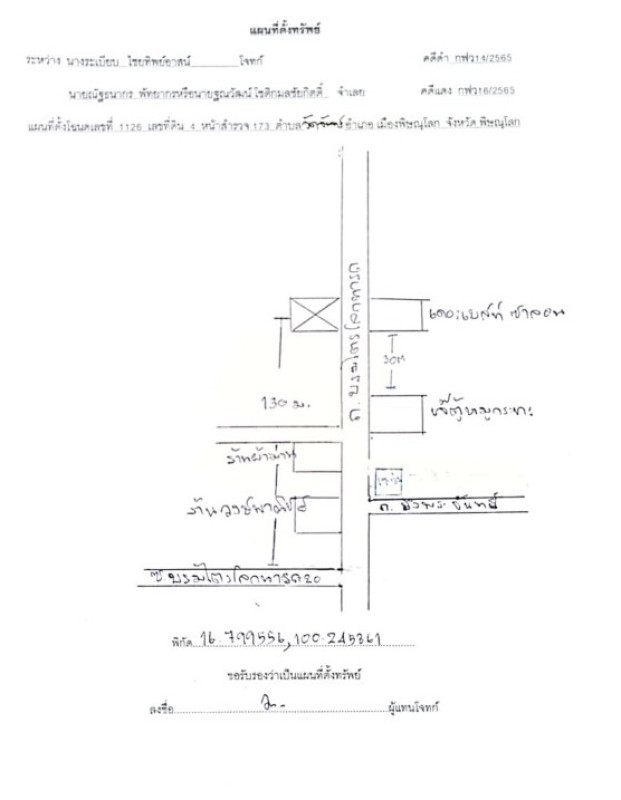 แผนที่ตั้งทรัพย์
ระหว่าง นางระเบียบ ไชยทิพย์อาสน์ โจทก์ คดีดำ กฟว14/2565
นายณัฐธนากร พัทยากรหรือนายฐณวัฒน์ โชติกมลชัยกิตติ์ จำเลย คดีแดง กฟว16/2565
แผนที่ตั้งโฉนดเลขที่ 1126 เลขที่ดิน 4 หน้าสำรวจ 173 ตำบล วัดจันทร์ อำเภอ เมืองพิษณุโลก จังหวัด พิษณุโลก
ถ. บรมไตรโลกนารถ
เดอะเบสท์ ซาลอน
30ม
130 ม.
หมูกระทะ
ร้านผ้าม่าน
ร้าน วงษ์พาณิชย์
ถ. พระจันทร์
ซ. บรมไตรโลกนารถ 20
พิกัด 16.799556, 100.245361
ขอรับรองว่าเป็นแผนที่ตั้งทรัพย์
ลงชื่อ ผู้แทนโจทก์